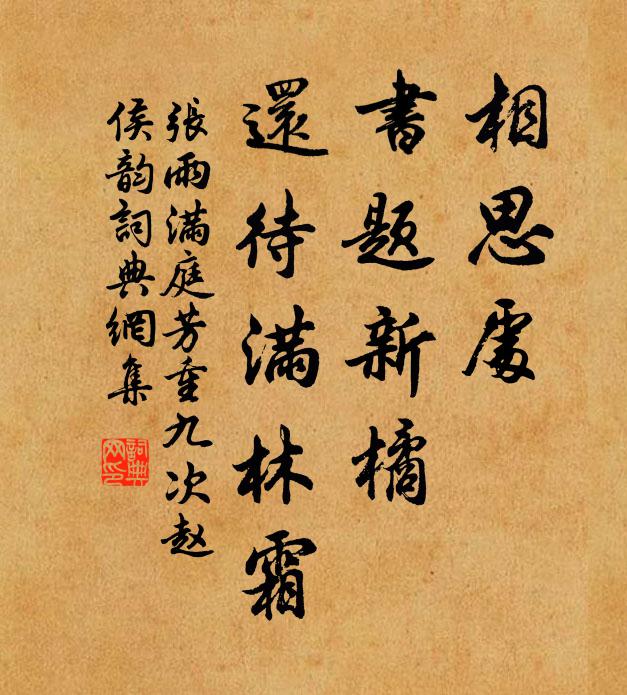 相思處
書題新橘
還待滿林霜
張雨滿庭芳重九次赵
侯韵詞典網集
詞典网印